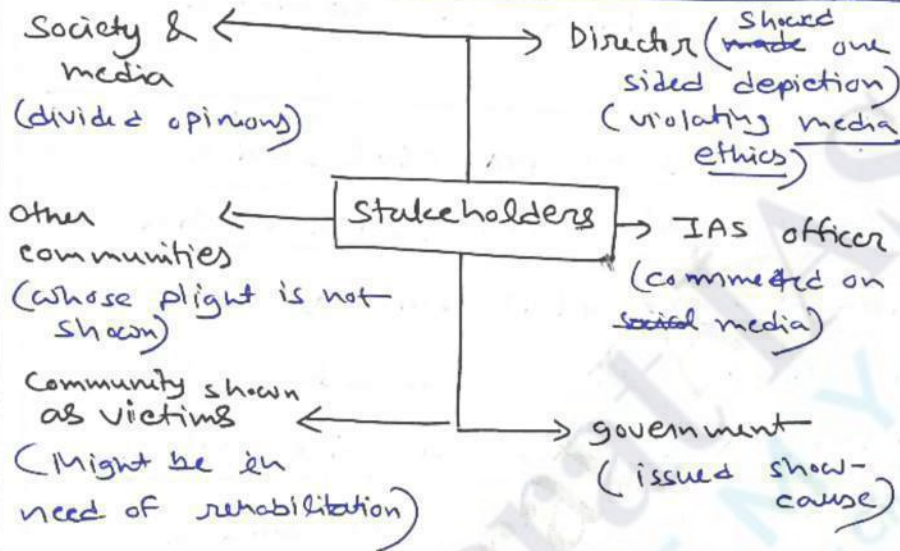 Society &
media
(divided opinions)
Director (showed
made one
sided depiction)
(violating media
ethics)
Stakeholders
other
communities
(whose plight is not
shown)
IAS officer
(commented on
social media)
Community shown
as victims
(Might be in
need of rehabilitation)
government
(issued show-
cause)